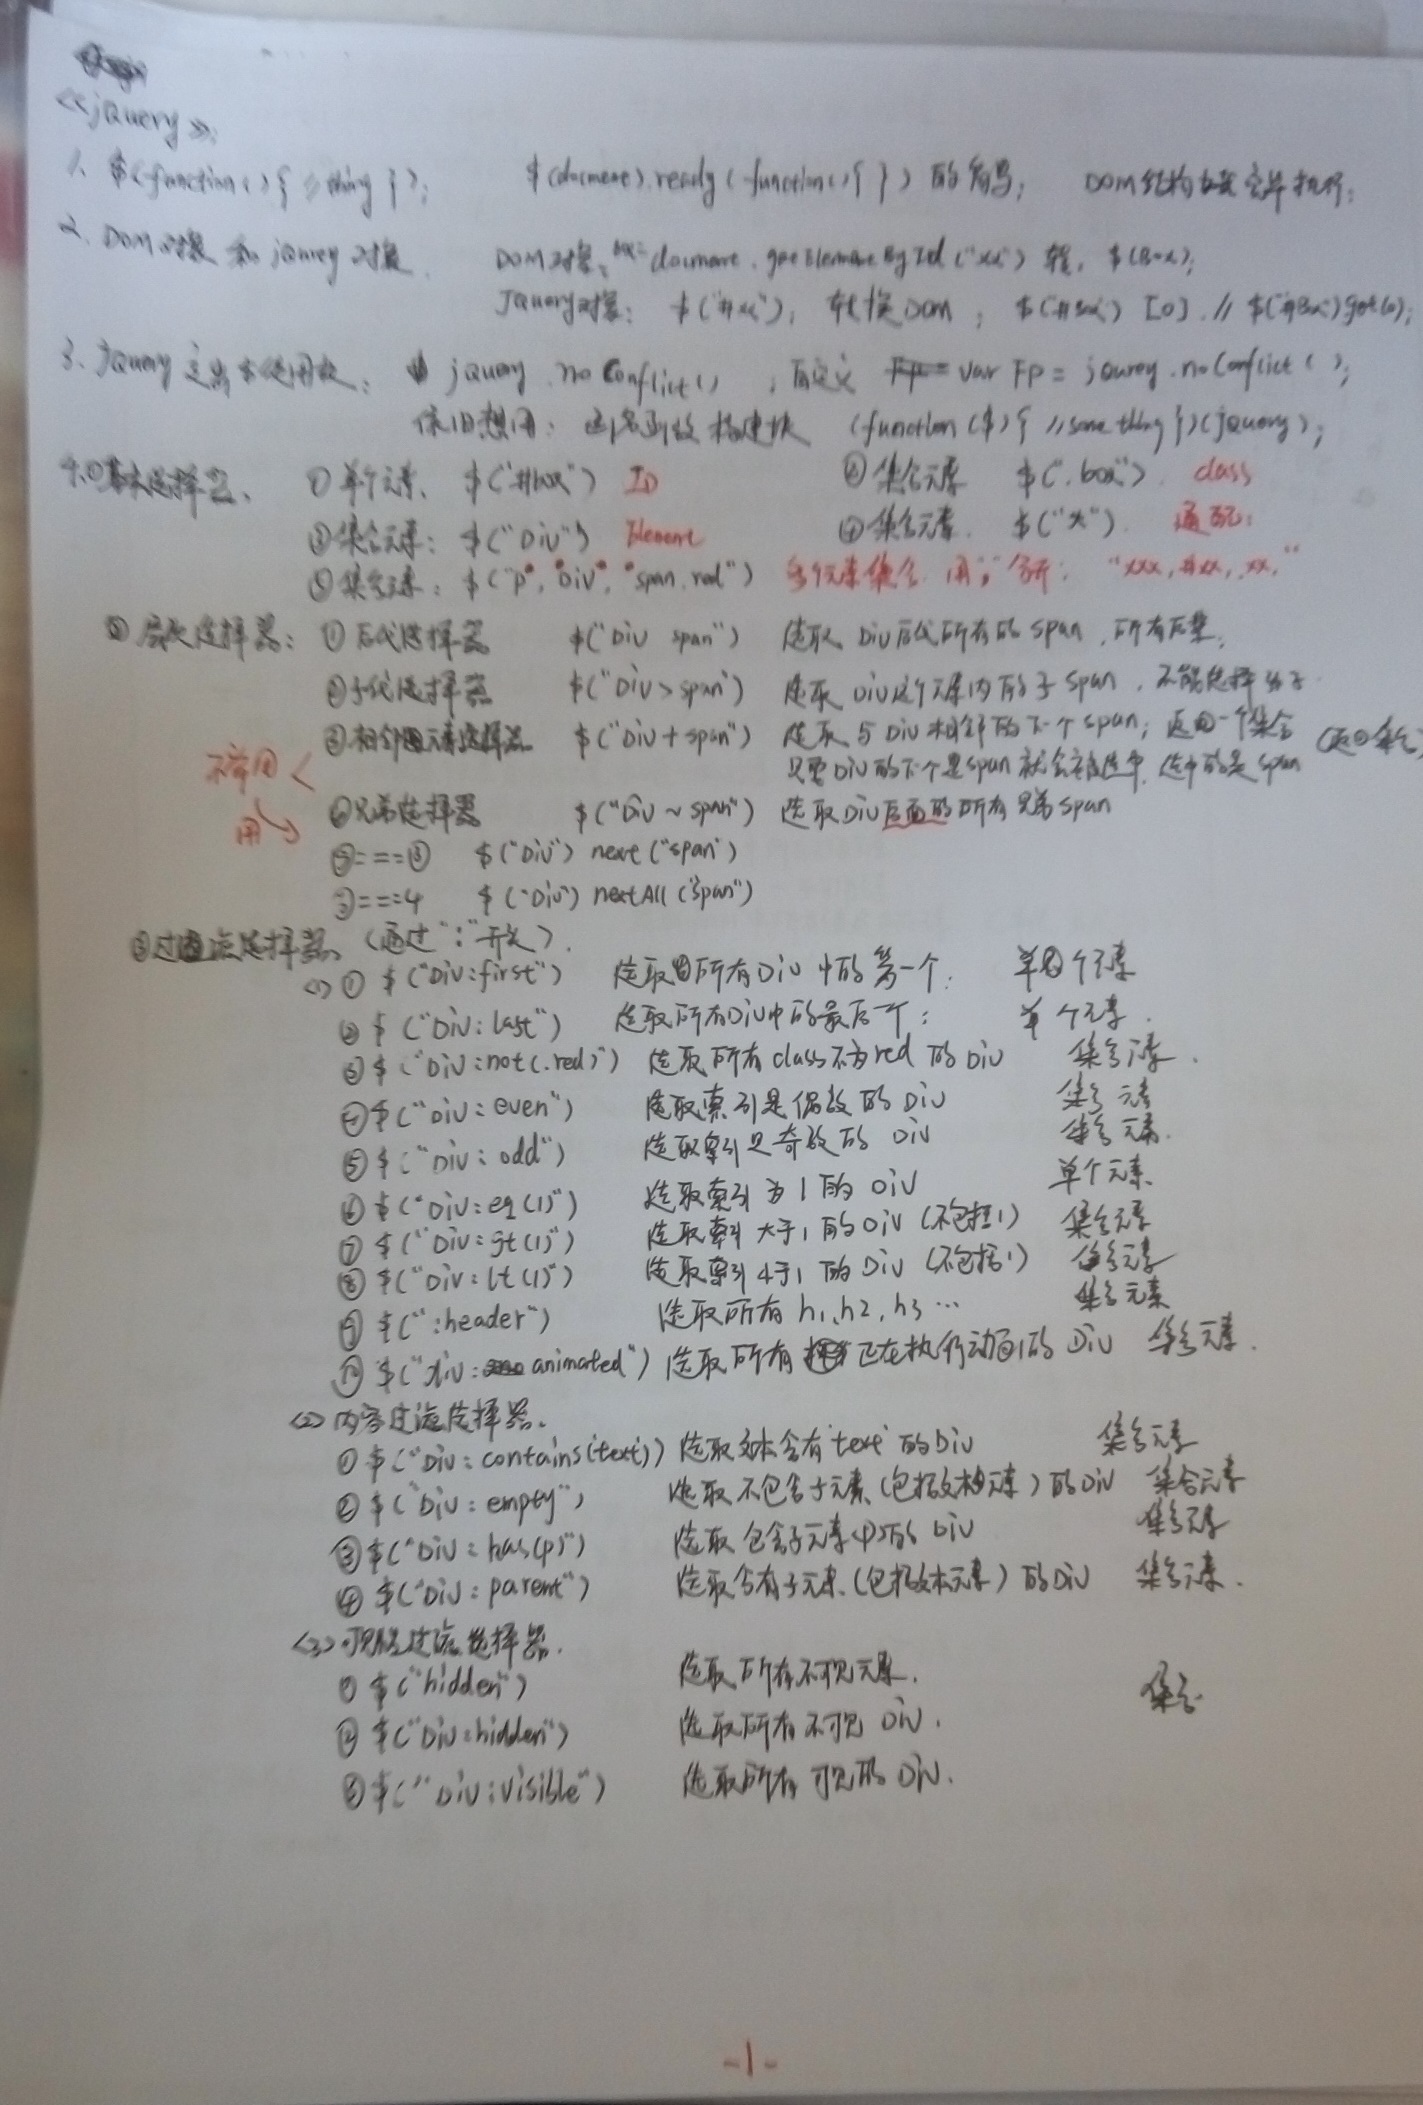 <<jQuery>>:
1. $(function(){ //thing }); $(document).ready(function(){ }) 的简写; DOM结构加载完毕执行;
2. DOM对象和jQuery对象. DOM对象: box=document.getElementById("xx") 转, $(Box);
JQuery对象: $("#xx"); 转换DOM ; $("#Box")[0] // $("#Box")get(0);
3. jQuery 使用权: jQuery.noConflict() ; 自定义 var Fp = jQuery.noConflict();
依旧想用: 函数构建块 (function($){ //some thing })(jQuery);
4.①基本选择器. ①单个元素. $("#box") ID ②集合元素 $(".box"). class
③集合元素: $("Div") Element ④集合元素. $("*"). 通配:
⑤集合元素: $("p, Div, span.red") 多个元素集合. 用","分开: "xxx, #xx, .xx,"
②层次选择器: ①后代选择器 $("Div span") 选取 Div后代所有的span, 所有后辈.
②子代选择器 $("Div>span") 选取 Div这个元素内的子span, 不能选择孙子.
③相邻元素选择器 $("Div+span") 选取与Div相邻的下一个span; 返回一个集合 (返回集合)
不常用< 只要Div的下个是span就会被选中, 选中的是span
④兄弟选择器 $("Div~span") 选取Div后面的所有兄弟span
用→ ⑤===③ $("Div") next("span")
===4 $("Div") nextAll("span")
③过滤选择器. (通过":"开头).
<1> ① $("Div:first") 选取所有Div中的第一个. 单个元素
② $("Div:last") 选取所有Div中的最后一个: 单个元素.
③ $("Div:not(.red)") 选取所有class不为red的Div 集合元素.
④ $("Div:even") 选取索引是偶数的Div 集合元素
⑤ $("Div:odd") 选取索引是奇数的 Div 集合元素.
⑥ $("Div:eq(1)") 选取索引为1的Div 单个元素
⑦ $("Div:gt(1)") 选取索引大于1的Div (不包括1) 集合元素
⑧ $("Div:lt(1)") 选取索引小于1的Div (不包括1) 集合元素
⑨ $(":header") 选取所有h1、h2、h3… 集合元素
⑩ $("Div:animated") 选取所有正在执行动画的Div 集合元素.
<2> 内容过滤选择器.
① $("Div:contains(text)) 选取文本含有'text'的Div 集合元素
② $("Div:empty") 选取不包含子元素(包括文本元素)的Div 集合元素
③ $("Div:has(p)") 选取包含子元素<p>的Div 集合元素
④ $("Div:parent") 选取含有子元素.(包括文本元素)的Div 集合元素.
<3> 可见过滤选择器.
① $("hidden") 选取所有不可见元素. 集合
② $("Div:hidden") 选取所有不可见 Div.
③ $("Div:visible") 选取所有可见的Div.
-1-